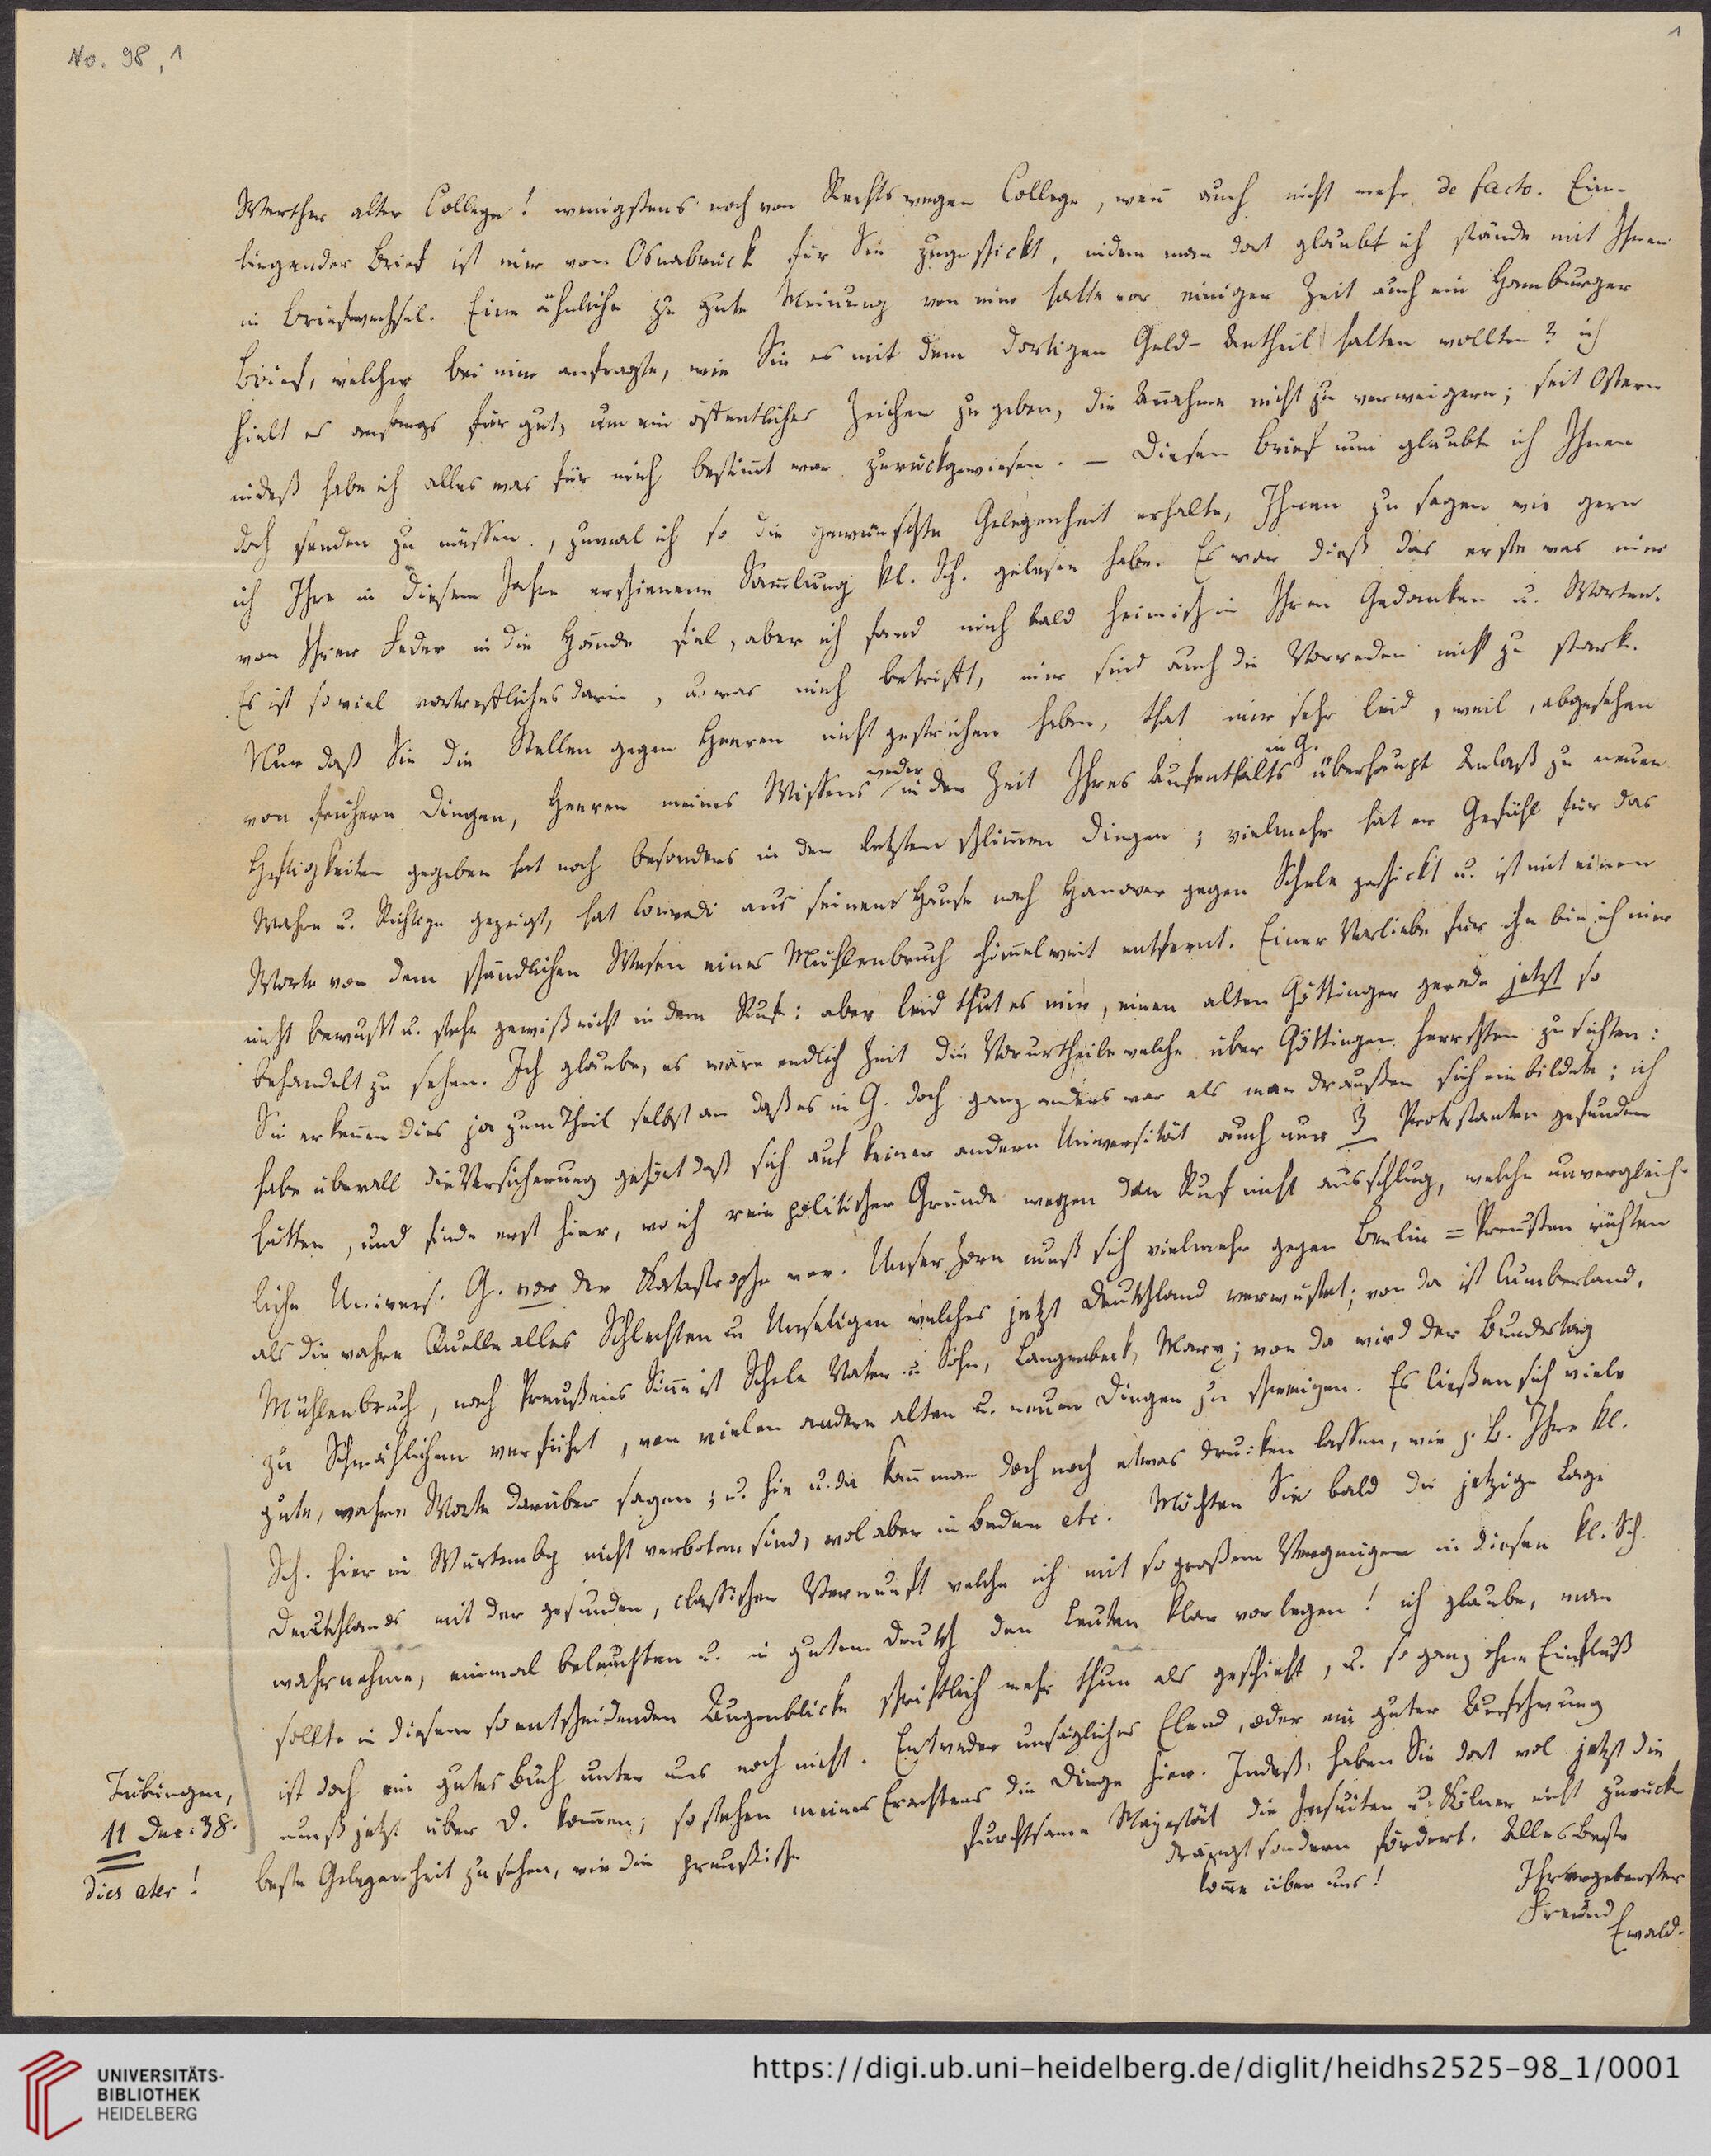 No. 98,1
1
Werther alter College! wenigstens noch von Rechts wegen College, wenn auch nicht mehr de facto. Ein-
liegender Brief ist mir von Osnabrück für Sie zugeschickt, indem man dort glaubt ich stände mit Ihnen
in Briefwechsel. Eine ähnliche zu gute Meinung von mir hatte vor einiger Zeit auch ein Hamburger
Brief, welcher bei mir anfragte, wie Sie es mit dem dortigen Geld-Antheil halten wollten? ich
hielt es anfangs für gut, um ein öffentliches Zeichen zu geben, die Annahme nicht zu verweigern; seit Ostern
indeß habe ich alles was für mich bestimmt war zurückgewiesen. – Diesen Brief nun glaubte ich Ihnen
doch senden zu müssen, zumal ich so die gewünschte Gelegenheit erhalte, Ihnen zu sagen wie gern
ich Ihre in diesem Jahre erschienene Sammlung kl. Sch. gelesen habe. Es war dieß das erste was mir
von Ihrer Feder in die Hände fiel, aber ich fand mich bald heimisch in Ihren Gedanken u. Worten.
Es ist soviel vortreffliches darin, u. was mich betrifft, mir sind auch die Vorreden nicht zu stark.
Nur daß Sie die Stellen gegen Heeren nicht gestrichen haben, that mir sehr leid, weil, abgesehen
von frühern Dingen, Heeren meines Wissens weder in der Zeit Ihres Aufenthalts in G. überhaupt Anlaß zu neuen
Heftigkeiten gegeben hat noch besonders in den letzten schlimmen Dingen; vielmehr hat er Gefühl für das
Wahre u. Richtige gezeigt, hat Conradi aus seinem Hause nach Hanover gegen Schele geschickt u. ist mit einem
Worte von dem schändlichen Wesen eines Mühlenbruch himmelweit entfernt. Einer Vorliebe für ihn bin ich mir
nicht bewußt u. stehe gewiß nicht in dem Rufe: aber leid thut es mir, einen alten Göttinger gerade jetzt so
behandelt zu sehen. Ich glaube, es wäre endlich Zeit die Vorurtheile welche über Göttingen herrschten zu sichten:
Sie erkennen dies ja zum Theil selbst an daß es in G. doch ganz anders war als man draußen sich einbildete; ich
habe überall die Versicherung gehört daß sich auf keiner andern Universität auch nur 3 Protestanten gefunden
hätten, und finde erst hier, wo ich rein politischer Gründe wegen den Ruf nicht ausschlug, welche unvergleich-
liche Univers. G. vor der Katastrophe war. Unser Zorn muß sich vielmehr gegen Berlin = Preußen richten
als die wahre Quelle alles Schlechten u. Unseligen welches jetzt Deutschland verwüstet; von da ist Cumberland,
Mühlenbruch, nach Preußens Sinne ist Schele Vater u. Sohn, Langenbeck, Marx; von da wird der Bundestag
zu Schmählichem verführt, von vielen andern alten u. neuen Dingen zu schweigen. Es ließen sich viele
gute, wahre Worte darüber sagen; u. hie u. da kann man doch noch etwas drucken lassen, wie z. B. Ihre kl.
Sch. hier in Würtembg nicht verboten sind, wol aber in Baden etc. Möchten Sie bald die jetzige Lage
Deutschlands mit der gesunden, classischen Vernunft welche ich mit so großem Vergnügen in diesen kl. Sch.
wahrnehme, einmal beleuchten u. in gutem Deutsch den Leuten klar vorlegen! ich glaube, man
sollte in diesem so entscheidenden Augenblicke schriftlich mehr thun als geschieht, u. so ganz ohne Einfluß
ist doch ein gutes Buch unter uns noch nicht. Entweder unsägliches Elend, oder ein guter Aufschwung
muß jetzt über D. kommen; so stehen meines Erachtens die Dinge hier. Indeß haben Sie dort wol jetzt die
beste Gelegenheit zu sehen, wie die preußische furchtsame Majestät die Jesuiten u. Kölner nicht zurück
drängt sondern fördert. Alles beste
komme über uns!
Ihr ergebenster
Freund
Ewald.
Tübingen,
11 Dec. 38.
dies ater!
UNIVERSITÄTS-
BIBLIOTHEK
HEIDELBERG
https://digi.ub.uni-heidelberg.de/diglit/heidhs2525-98_1/0001